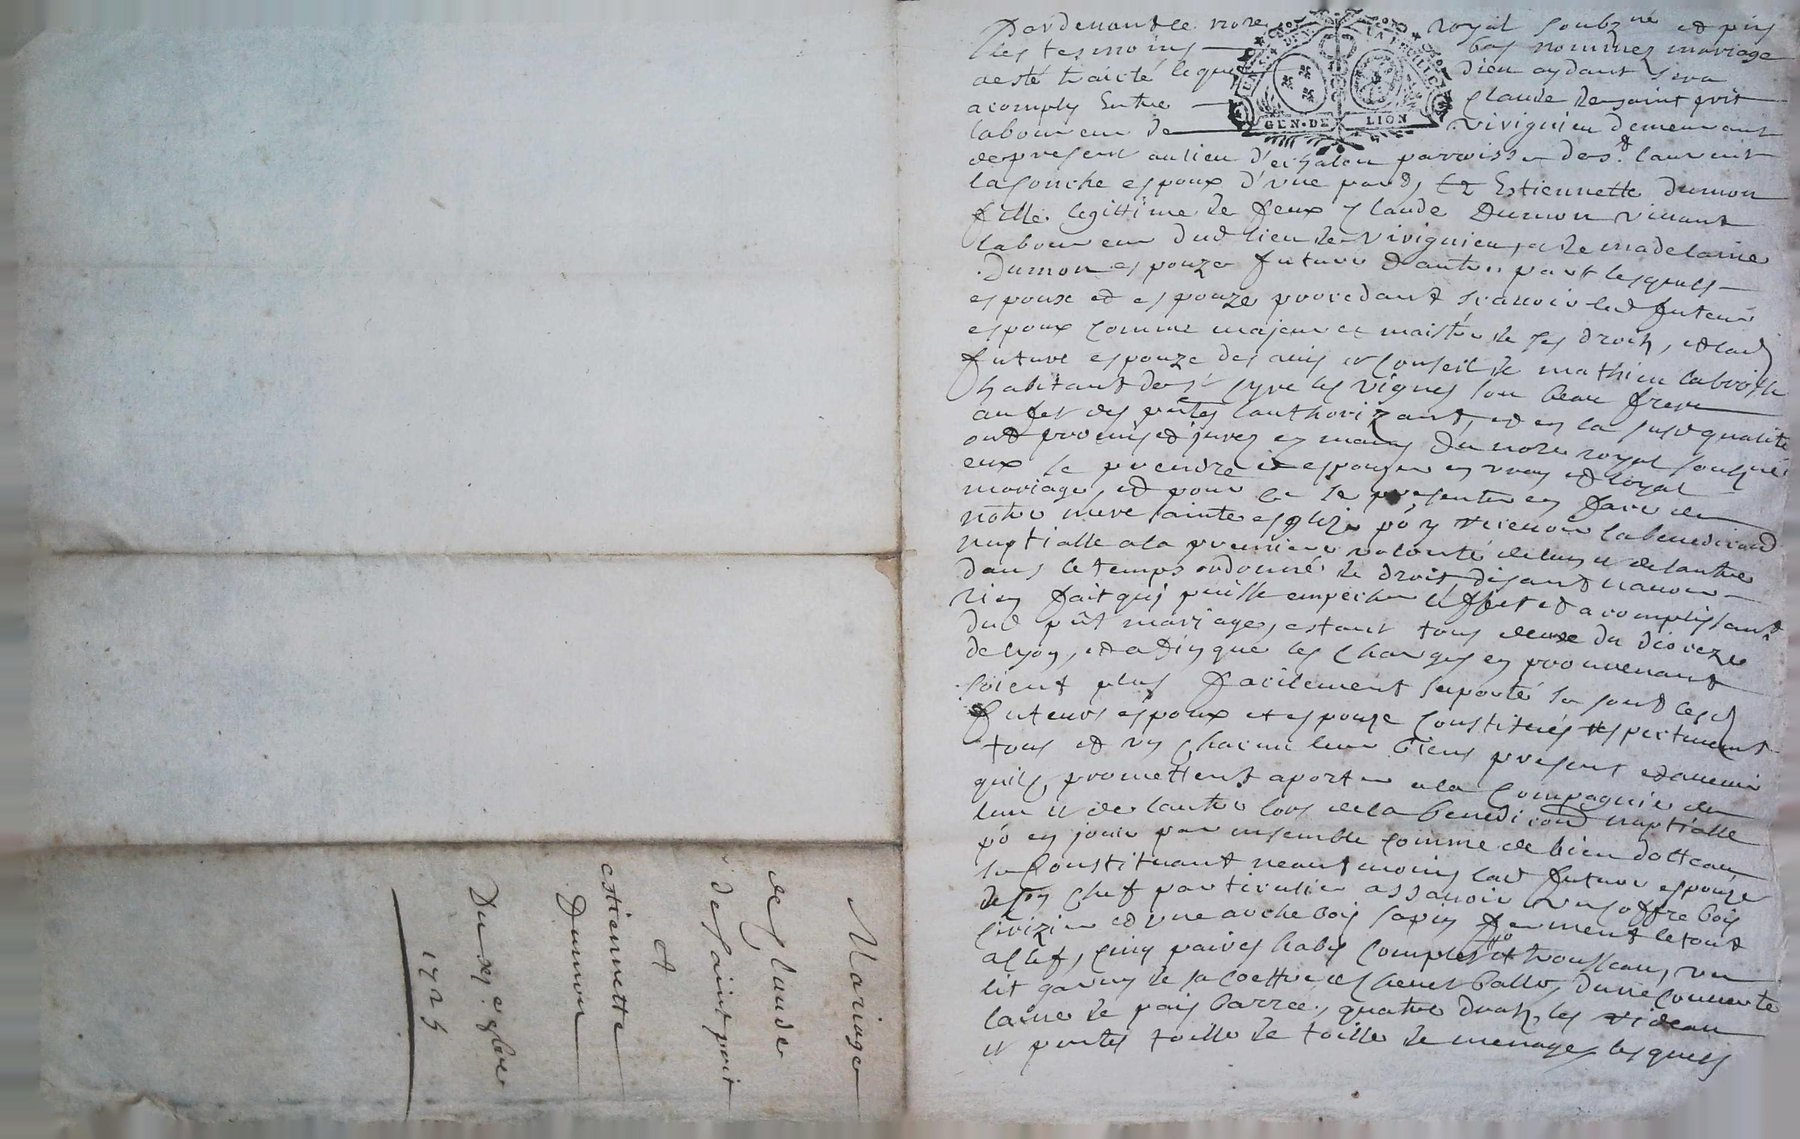 Pardevant le nore royal soubzné et pnt
les tesmoins bas nommez mariage
a esté traicté lequel dieu aydant sera
acomply Entre Claude de saint poit
laboureur de Vivignieu demeurant
de present au lieu d'echalou parroisse de st laurent
la conche espoux d'une part, Et Estiennette Dumon
fille legittime de feux Claude Dumon vivant
laboureur dud lieu de Vivignieu, et de madelaine
Dumon espouze future d'autre part lesquels
espoux et espouze procedant scavoir led futeur
espoux comme majeur et maistre de ses droits, et lad
future espouze des avis et Conseil de mathieu
habitant de st Cyre les vignes son beau frere
au fet des pntes l'authorizant, et en la susd qualité
ont promis et jurez es mains du nore royal soubzné
eux se prendre et espouser en vray et loyal
mariage, et pour ce se presenter en face de
notre mere sainte esglize po y recevoir la benediction
nuptialle a la premiere volonté de lun et de lautre
dans le temps ordonné de droit, disant n'avoir
rien fait qui puisse empecher l'effet et acomplissant
dud pnt mariage, estant tous deux du dioceze
de lyon, et a fin que les Charges en prouvenant
soient plus facilement suporté se sont lesd
futeurs espoux et espouze Constitués respectivement
tous et un chacun leur biens present et avenir
quils promettent aporter a la Compagnie de
lun et de lautre lors de la benediction nuptialle
po en jouir par ensemble comme de bien dottaux
se Constituant neantmoins lad future espouze
de son Chef particulier assavoir un coffre bois
cirizier et une arche bois sapin fermant le tout
a clef, cinq paires habis Complet et trousseau, un
lit garny de sa coettre et chevet balle, d'une couverte
laine de pais barrée, quatre drats, les rideau
et pentes toille de toille de menage, lesquels
Mariage
de Claude
de saint poit
et
estiennette
Dumon
Du 8bre
1725
GEN·DE LION